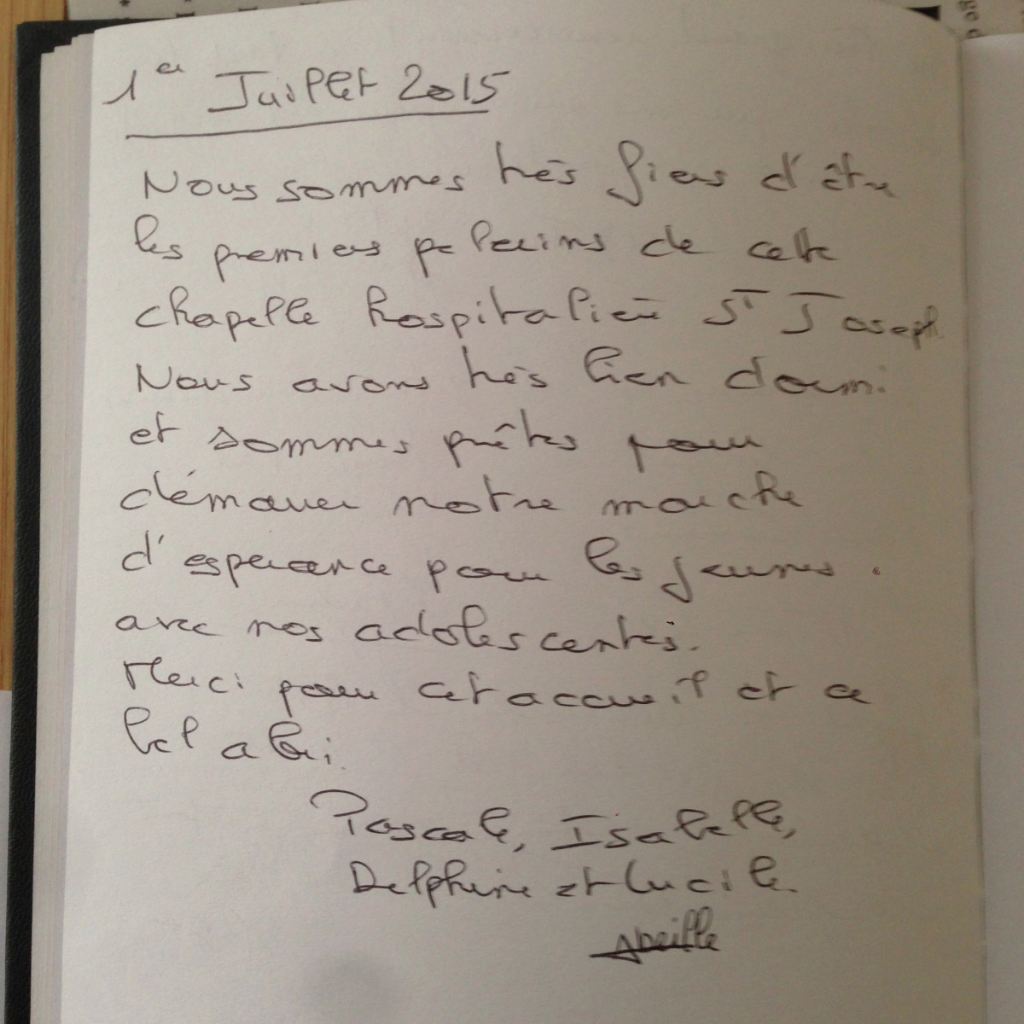 1er Juillet 2015
Nous sommes très fiers d'être
les premiers pelerins de cette
chapelle hospitalière St Joseph
Nous avons très bien dormi
et sommes prêtes pour
démarrer notre marche
d'esperance pour les jeunes.
avec nos adolescentes.
Merci pour cet accueil et ce
bel abri.
Pascale, Isabelle,
Delphine et Lucile.
Abeille